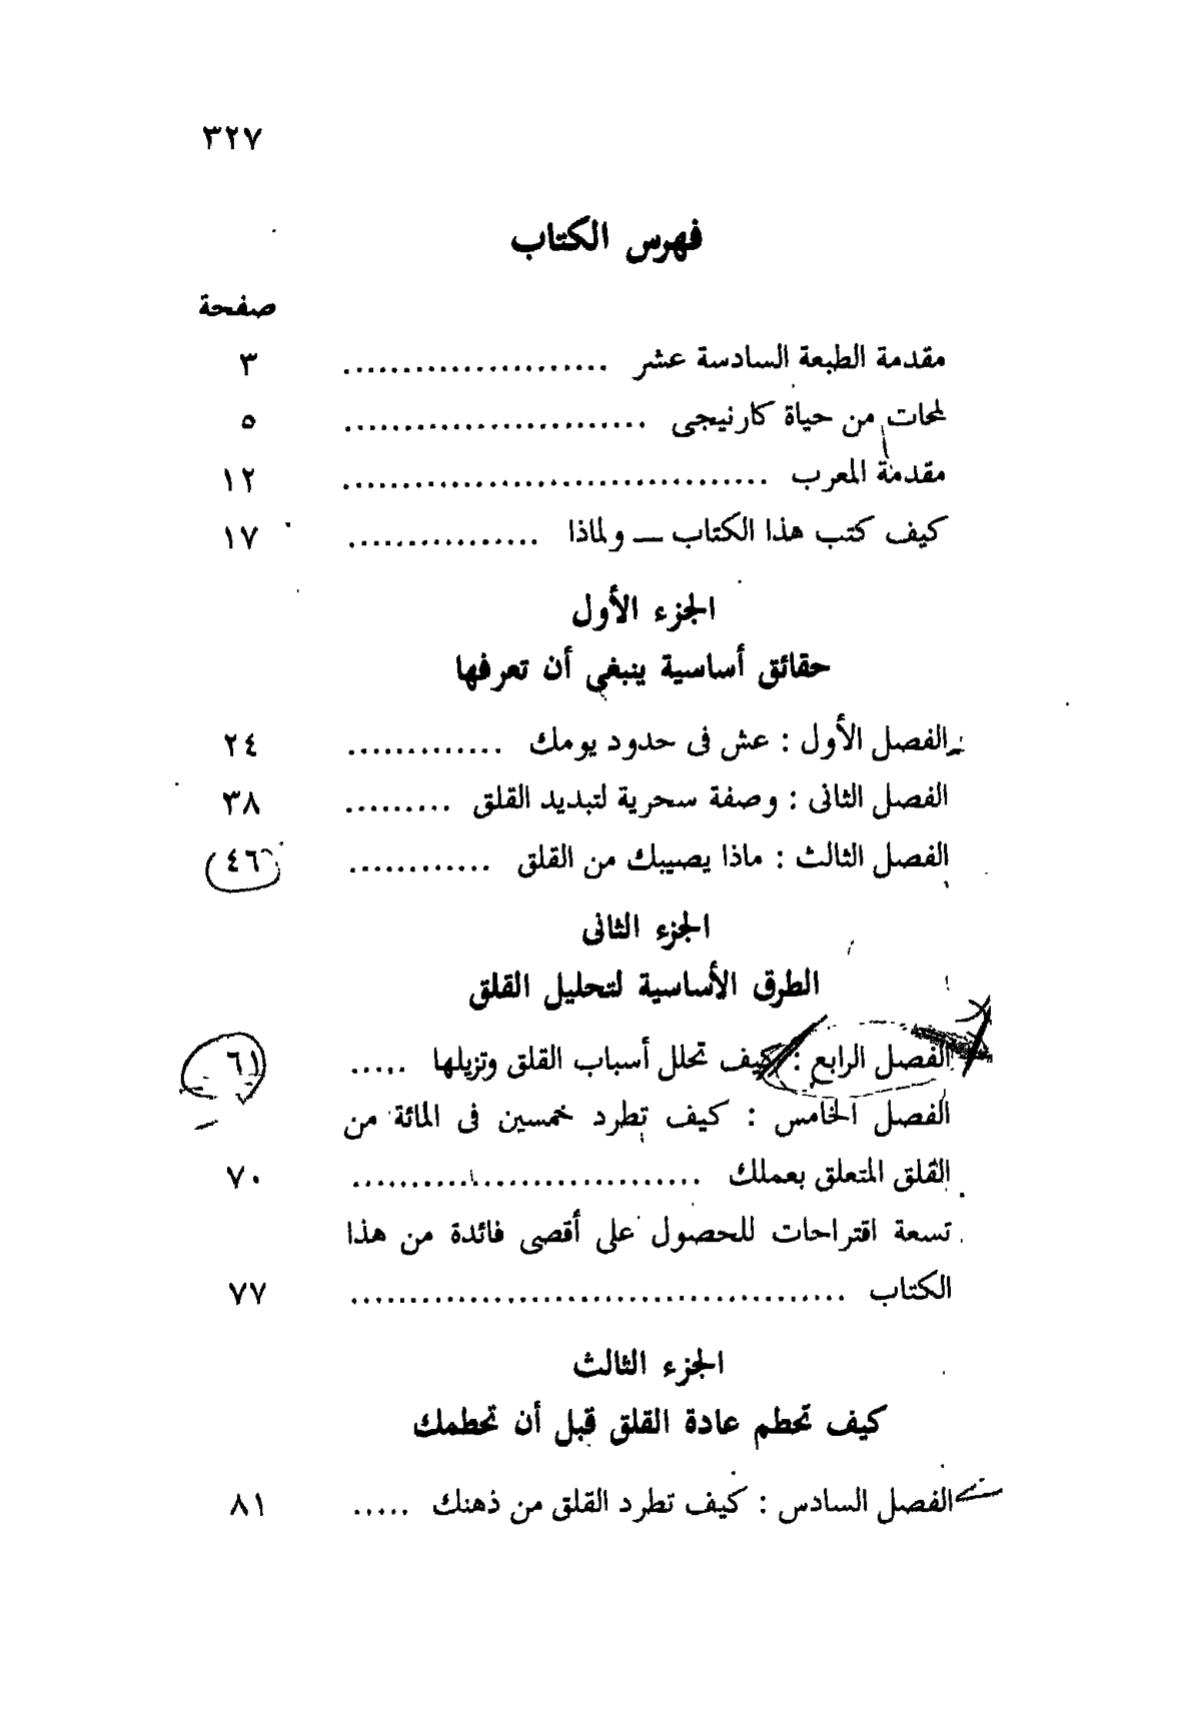 ٣٢٧
فهرس الكتاب
صفحة
مقدمة الطبعة السادسة عشر ...................... ٣
لمحات من حياة كارنيجى ......................... ٥
مقدمة المعرب ................................... ١٢
كيف كتب هذا الكتاب — ولماذا ................ ١٧
الجزء الأول
حقائق أساسية ينبغى أن تعرفها
الفصل الأول : عش فى حدود يومك ............. ٢٤
الفصل الثانى : وصفة سحرية لتبديد القلق ......... ٣٨
الفصل الثالث : ماذا يصيبك من القلق ............ ٤٦
الجزء الثانى
الطرق الأساسية لتحليل القلق
الفصل الرابع : كيف تحلل أسباب القلق وتزيلها ..... ٦١
الفصل الخامس : كيف تطرد خمسين فى المائة من
القلق المتعلق بعملك ............................. ٧٠
تسعة اقتراحات للحصول على أقصى فائدة من هذا
الكتاب ......................................... ٧٧
الجزء الثالث
كيف تحطم عادة القلق قبل أن تحطمك
الفصل السادس : كيف تطرد القلق من ذهنك ..... ٨١